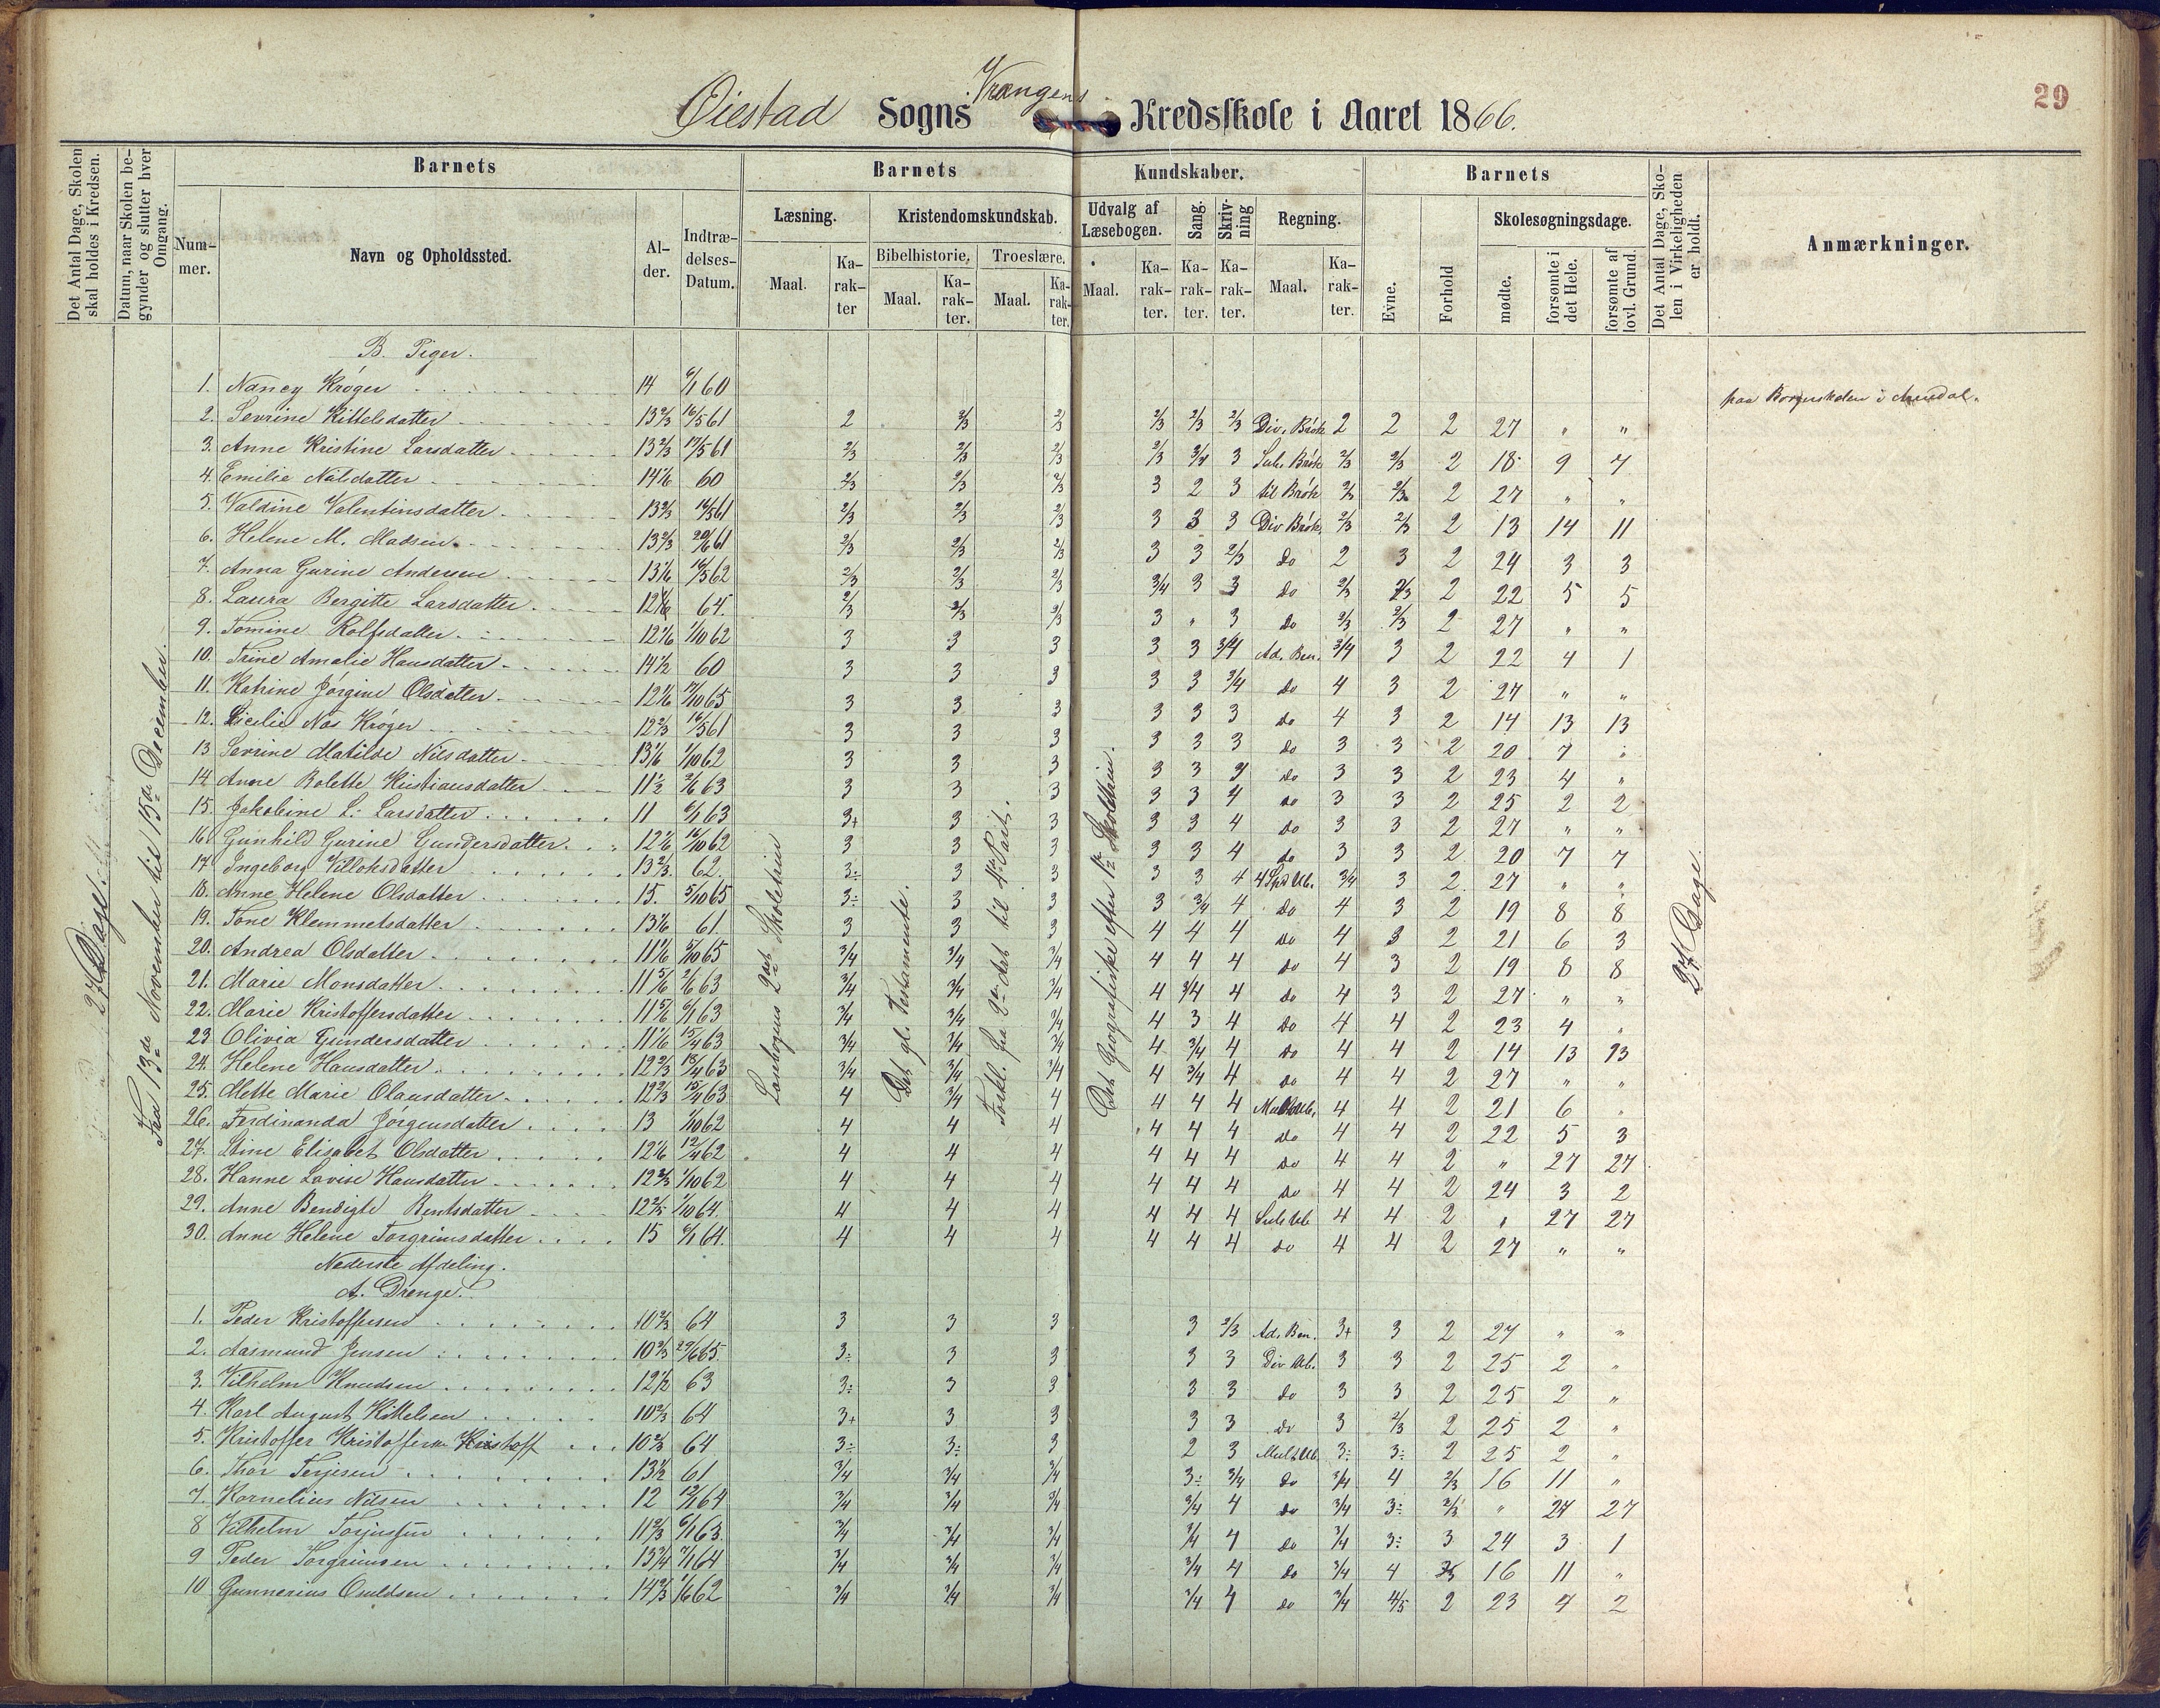 29
Øiestad Sogns Vrangens Kredsskole i Aaret 1866.
Det Antal Dage, Skolen skal holdes i Kredsen.
Datum, naar Skolen begynder og slutter hver Omgang.
Barnets
Barnets
Kundskaber.
Barnets
Det Antal Dage, Skolen i Virkeligheden er holdt.
Anmærkninger.
Nummer.
Navn og Opholdssted.
Alder.
Indtrædelses-Datum.
Læsning.
Kristendomskundskab.
Udvalg af Læsebogen.
Sang.
Skrivning
Regning.
Evne.
Forhold
Skolesøgningsdage.
Bibelhistorie.
Troeslære.
Maal.
Karakter
Maal.
Karakter.
Maal.
Karakter.
Maal.
Karakter.
Karakter.
Karakter.
Maal.
Karakter.
mødte.
forsømte i det Hele.
forsømte af lovl. Grund.
27 Dage.
Fra 13de November til 15de December.
Det gl. Testamente.
27 Dage.
B. Piger.
1. Nancy Krøger 14 6/1 60 paa Borgerskolen i Arendal.
2. Sevrine Kittelsdatter 13 2/3 16/5 61 2 2/3 2/3 2/3 2/3 2/3 Div. Brøk 2 2 2 27 " "
3. Anne Kristine Larsdatter 13 2/3 17/5 61 2/3 2/3 2/3 2/3 3/4 3 Sub. Brøk 2/3 2/3 2 18 9 7
4. Emilie Nilsdatter 14 1/6 60 2/3 2/3 2/3 3 2 3 til Brøk 2/3 2/3 2 27 " "
5. Valdine Valentinsdatter 13 2/3 16/5 61 2/3 2/3 2/3 3 3 3 Div Brøk 2/3 2/3 2 13 14 11
6. Helene M. Madsen 13 2/3 20/6 61 2/3 2/3 2/3 3 3 2/3 do 2 3 2 24 3 3
7. Anna Gurine Andersen 13 1/6 16/5 62 2/3 2/3 2/3 3/4 3 3 do 2/3 2/3 2 22 5 5
8. Laura Bergitte Larsdatter 12 1/6 64. 2/3 2/3 2/3 3 " 3 do 2/3 2/3 2 27 " "
9. Tomine Rolfsdatter 12 1/6 1/10 62 3 3 3 3 3 3/4 Ad. Ben. 3/4 3 2 22 4 1
10. Trine Amalie Hansdatter 14 1/2 60 3 3 3 3 3 3/4 do 4 3 2 27 " "
11. Katrine Jørgine Olsdatter 12 1/6 17/10 65 3 3 3 3 3 3 do 4 3 2 14 13 13
12. Sicilie Næs Krøger 12 2/3 16/5 61 3 3 3 3 3 3 do 3 3 2 20 7 "
13 Sevrine Matilde Nilsdatter 13 1/6 1/10 62 3 3 3 3 3 3 do 3 3 2 23 4 "
14 Anne Bolette Kristiansdatter 11 1/2 2/6 63 3 3 3 3 3 4 do 3 3 2 25 2 2
15. Jakobine L. Larsdatter 11 6/1 63 3+ 3 3 3 3 4 do 3 3 2 27 " "
16 Gunhild Gurine Gundersdatter 12 1/6 16/10 62 3 3 3 3 3 4 do 3 3 2 20 7 7
17 Ingeborg Villoksdatter 13 2/3 62. 3÷ 3 3 3 3 4 4 Spd Ub. 3/4 3 2 27 " "
18. Anne Helene Olsdatter 15. 5/10 65 3÷ 3 3 3 3/4 4 do 4 3 2 19 8 8
19. Tone Klemmetsdatter 13 1/6 61. 3 3 3 4 4 4 do 4 3 2 21 6 3
20. Andrea Olsdatter 11 1/6 5/10 65 3/4 3/4 3/4 4 4 4 do 4 3 2 19 8 8
21. Marie Monsdatter 11 5/6 2/6 63 3/4 3/4 3/4 4 3/4 4 do 4 3 2 27 " "
22. Marie Kristoffersdatter 11 5/6 6/1 63 3/4 3/4 3/4 4 3 4 do 4 4 2 23 4 "
23 Olivia Gundersdatter 11 1/6 15/4 63 3/4 3/4 3/4 4 3/4 4 do 4 4 2 14 13 13
24. Helene Hansdatter 12 2/3 18/4 63 3/4 3/4 3/4 4 3/4 4 do 4 4 2 27 " "
25. Mette Marie Olausdatter 12 2/3 15/4 63 4 3/4 4 4 4 4 Mult Ub. 4 4 2 21 6 "
26. Ferdinanda Jørgensdatter 13 1/10 62 4 4 4 4 4 4 do 4 4 2 22 5 3
27. Stine Elisabet Olsdatter 12 1/6 12/4 62 4 4 4 4 4 4 do 4 4 2 " 27 27
28. Hanne Lovise Hansdatter 12 2/3 1/10 62 4 4 4 4 4 4 do 4 4 2 24 3 2
29. Anne Bendigte Berntsdatter 12 2/3 1/10 64. 4 4 4 4 4 4 Sub Ub 4 4 2 " 27 27
30. Anne Helene Torgrimsdatter 15 6/1 64. 4 4 4 4 4 4 do 4 4 2 27 " "
Nederste Afdeling.
A. Drenge.
1. Peder Kristoffersen 10 2/3 64 3 3 3 3 2/3 Ad. Ben. 3+ 3 2 27 " "
2. Aasmund Jensen 10 2/3 29/6 65. 3÷ 3 3 3 3 Div Ub. 3 3 2 25 2 "
3. Vilhelm Knudsen 12 1/2 63 3÷ 3 3 3 3 do 3 3 2 25 2 "
4. Karl August Kittelsen 10 2/3 64 3+ 3 3 3 3 do 3 2/3 2 25 2 "
5. Kristoffer Kristoffersen Kristoff 10 2/3 64 3÷ 3÷ 3 2 3 Mult Ub 3÷ 3÷ 2 25 2 "
6. Thor Terjesen 13 1/2 61 3/4 3/4 3/4 3÷ 3/4 do 3/4 4 2/3 16 11 "
7. Kornelius Nilsen 12 12/1 64 3/4 3/4 3/4 3/4 4 do 3/4 3÷ 2/3 " 27 27
8 Vilhelm Torjussen 11 2/3 6/1 63. 3/4 3/4 3/4 3/4 4 do 3/4 3÷ 3 24 3 1
9 Peder Torgrimsen 13 3/4 7/1 64 3/4 3/4 3/4 3/4 4 do 3/4 4 16 11 "
10 Gunnerius Osuldsen 14 2/3 1/6 62 3/4 3/4 3/4 3/4 4 do 3/4 4/5 2 23 4 2